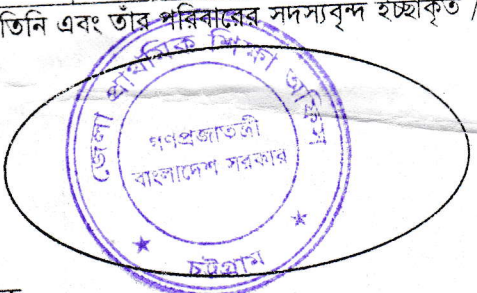 তিনি এবং তাঁর পরিবারের সদস্যবৃন্দ ইচ্ছাকৃত /
জেলা প্রাথমিক শিক্ষা অফিস
গণপ্রজাতন্ত্রী
বাংলাদেশ সরকার
চট্টগ্রাম